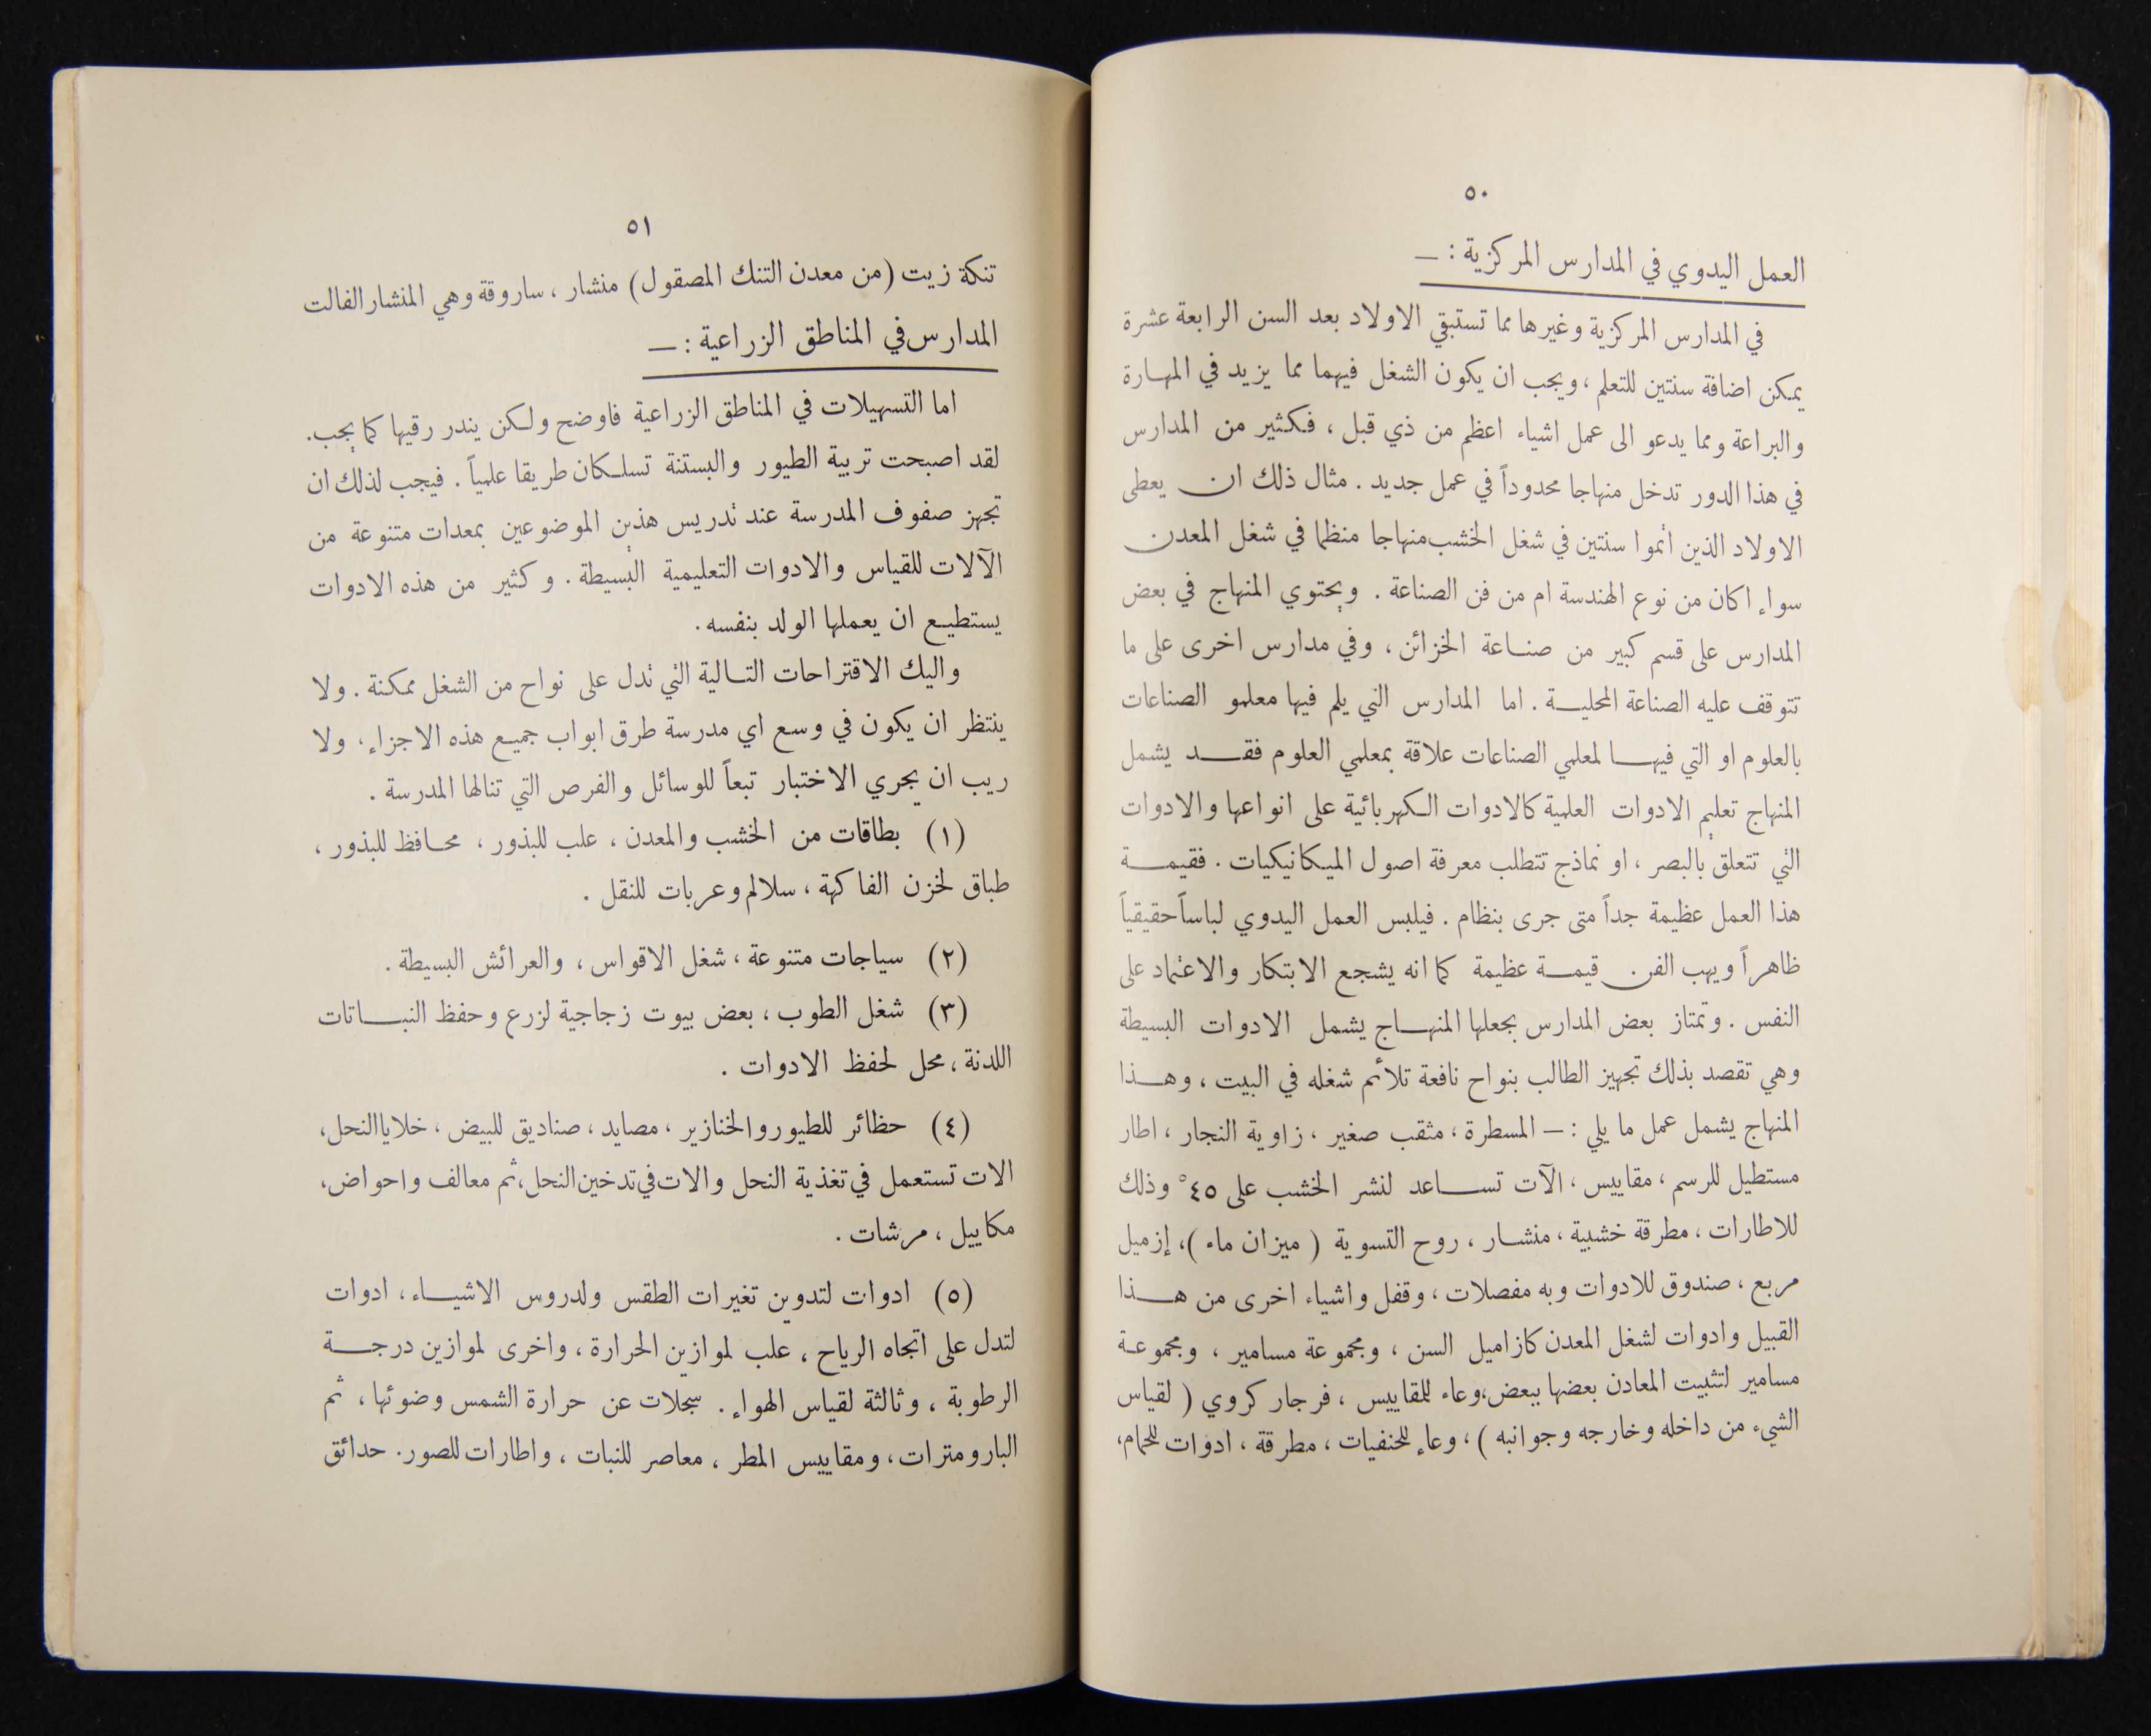 ٥٠
العمل اليدوي في المدارس المركزية : —
في المدارس المركزية وغيرها مما تستبقي الاولاد بعد السن الرابعة عشرة
يمكن اضافة سنتين للتعلم ، ويجب ان يكون الشغل فيهما مما يزيد في المهارة
والبراعة ومما يدعو الى عمل اشياء اعظم من ذي قبل ، فكثير من المدارس
في هذا الدور تدخل منهاجا محدوداً في عمل جديد . مثال ذلك ان يعطى
الاولاد الذين اتموا سنتين في شغل الخشب منهاجا منظما في شغل المعدن
سواء اكان من نوع الهندسة ام من فن الصناعة . ويحتوي المنهاج في بعض
المدارس على قسم كبير من صناعة الخزائن ، وفي مدارس اخرى على ما
تتوقف عليه الصناعة المحلية . اما المدارس التي يلم فيها معلمو الصناعات
بالعلوم او التي فيها لمعلمي الصناعات علاقة بمعلمي العلوم فقد يشمل
المنهاج تعليم الادوات العلمية كالادوات الكهربائية على انواعها والادوات
التي تتعلق بالبصر ، او نماذج تتطلب معرفة اصول الميكانيكيات . فقيمة
هذا العمل عظيمة جداً متى جرى بنظام . فيلبس العمل اليدوي لباساً حقيقياً
ظاهراً ويهب الفن قيمة عظيمة كما انه يشجع الابتكار والاعتماد على
النفس . وتمتاز بعض المدارس بجعلها المنهاج يشمل الادوات البسيطة
وهي تقصد بذلك تجهيز الطالب بنواح نافعة تلأم شغله في البيت ، وهذا
المنهاج يشمل عمل ما يلي : — المسطرة ، مثقب صغير ، زاوية النجار ، اطار
مستطيل للرسم ، مقاييس ، الآت تساعد لنشر الخشب على ٤٥° وذلك
للاطارات ، مطرقة خشبية ، منشار ، روح التسوية ( ميزان ماء ) ، إزميل
مربع ، صندوق للادوات وبه مفصلات ، وقفل واشياء اخرى من هذا
القبيل وادوات لشغل المعدن كازاميل السن ، ومجموعة مسامير ، ومجموعة
مسامير لتثبيت المعادن بعضها ببعض ، وعاء للمقاييس ، فرجار كروي ( لقياس
الشيء من داخله وخارجه وجوانبه ) ، وعاء للحنفيات ، مطرقة ، ادوات للحمام ،
٥١
تنكة زيت (من معدن التنك المصقول) منشار ، ساروقة وهي المنشار الفالت
المدارس في المناطق الزراعية : —
اما التسهيلات في المناطق الزراعية فاوضح ولكن يندر رقيها كما يجب .
لقد اصبحت تربية الطيور والبستنة تسلكان طريقا علمياً . فيجب لذلك ان
تجهز صفوف المدرسة عند تدريس هذين الموضوعين بمعدات متنوعة من
الآلات للقياس والادوات التعليمية البسيطة . وكثير من هذه الادوات
يستطيع ان يعملها الولد بنفسه .
واليك الاقتراحات التالية التي تدل على نواح من الشغل ممكنة . ولا
ينتظر ان يكون في وسع اي مدرسة طرق ابواب جميع هذه الاجزاء ، ولا
ريب ان يجري الاختبار تبعاً للوسائل والفرص التي تنالها المدرسة .
(١) بطاقات من الخشب والمعدن ، علب للبذور ، محافظ للبذور ،
طباق لخزن الفاكهة ، سلالم وعربات للنقل .
(٢) سياجات متنوعة ، شغل الاقواس ، والعرائش البسيطة .
(٣) شغل الطوب ، بعض بيوت زجاجية لزرع وحفظ النباتات
اللدنة ، محل لحفظ الادوات .
(٤) حظائر للطيور والخنازير ، مصايد ، صناديق للبيض ، خلايا النحل ،
الات تستعمل في تغذية النحل والات في تدخين النحل ، ثم معالف واحواض ،
مكاييل ، مرشات .
(٥) ادوات لتدوين تغيرات الطقس ولدروس الاشياء ، ادوات
لتدل على اتجاه الرياح ، علب لموازين الحرارة ، واخرى لموازين درجة
الرطوبة ، وثالثة لقياس الهواء . سجلات عن حرارة الشمس وضوئها ، ثم
البارومترات ، ومقاييس المطر ، معاصر للنبات ، واطارات للصور . حدائق